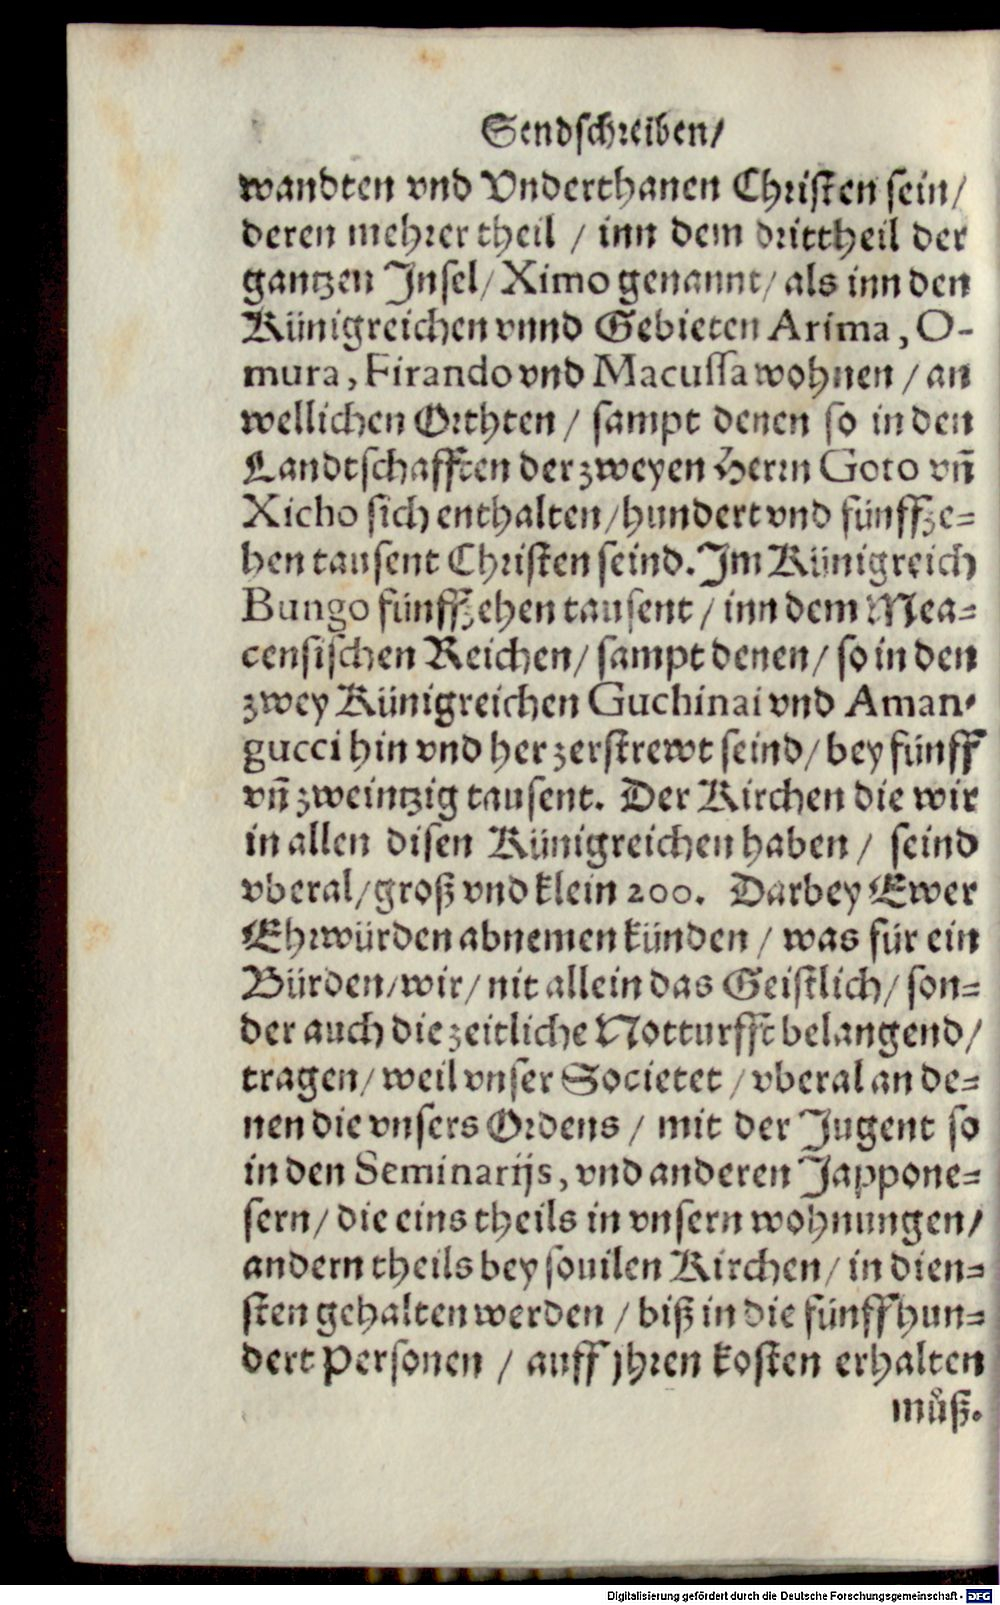 Sendschreiben/
wandten vnd Vnderthanen Christen sein/
deren mehrer theil / inn dem drittheil der
gantzen Insel/ Ximo genannt/ als inn den
Künigreichen vnnd Gebieten Arima, O-
mura, Firando vnd Macussa wohnen / an
wellichen Orthten / sampt denen so in den
Landtschafften der zweyen Herrn Goto vñ
Xicho sich enthalten/hundert vnd fünffze=
hen tausent Christen seind. Im Künigreich
Bungo fünffzehen tausent / inn dem Mea=
censischen Reichen/ sampt denen/ so in den
zwey Künigreichen Guchinai vnd Aman-
gucci hin vnd her zerstrewt seind/ bey fünff
vñ zweintzig tausent. Der Kirchen die wir
in allen disen Künigreichen haben / seind
vberal/groß vnd klein 200. Darbey Ewer
Ehrwürden abnemen künden / was für ein
Bürden/wir/ nit allein das Geistlich/ son=
der auch die zeitliche Notturfft belangend/
tragen/ weil vnser Societet / vberal an de=
nen die vnsers Ordens / mit der Jugent so
in den Seminarijs, vnd anderen Jappone=
sern/ die eins theils in vnsern wohnungen/
andern theils bey souilen Kirchen/ in dien=
sten gehalten werden / biß in die fünffhun=
dert Personen / auff jhren kosten erhalten
muͦß.
Digitalisierung gefördert durch die Deutsche Forschungsgemeinschaft - DFG